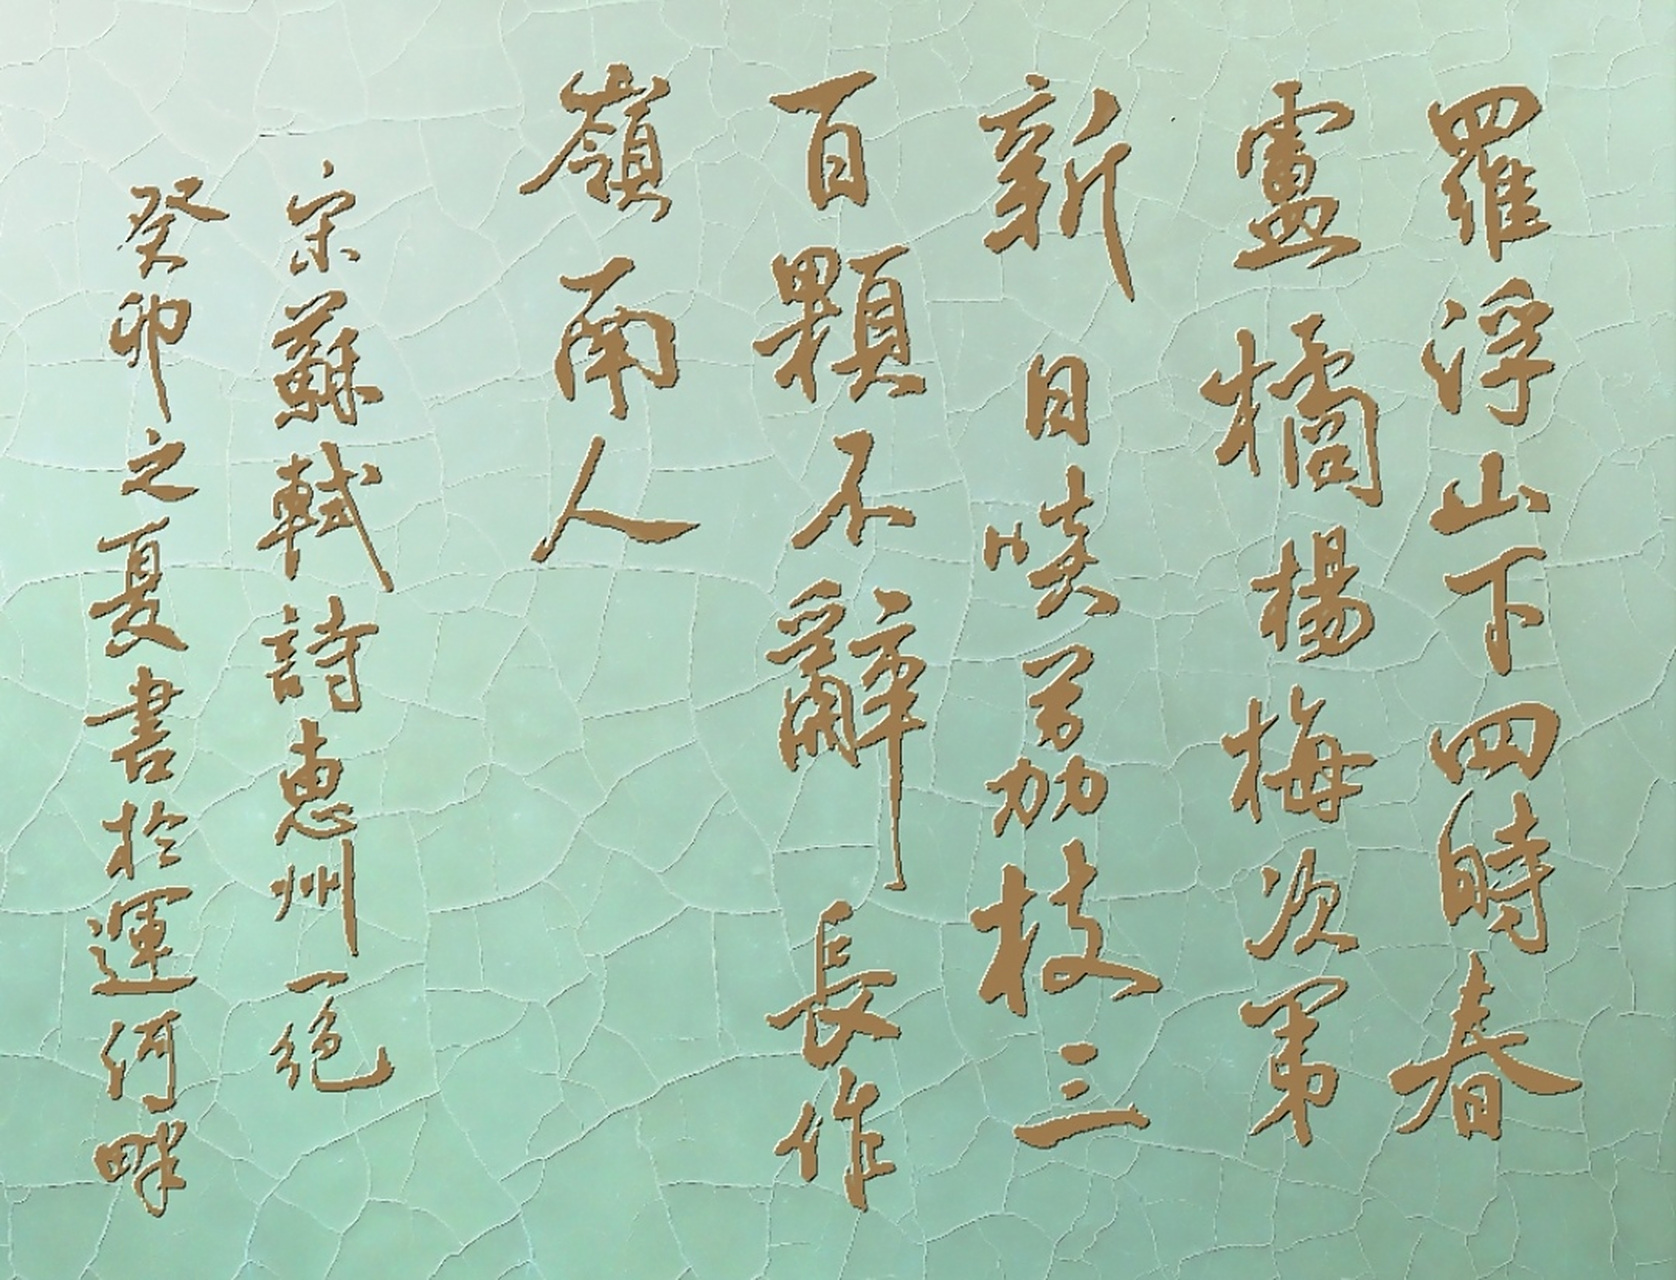 羅浮山下四時春
盧橘楊梅次第
新日啖荔枝三
百顆不辭長作
嶺南人
宋蘇軾詩惠州一絕
癸卯之夏書於運河畔